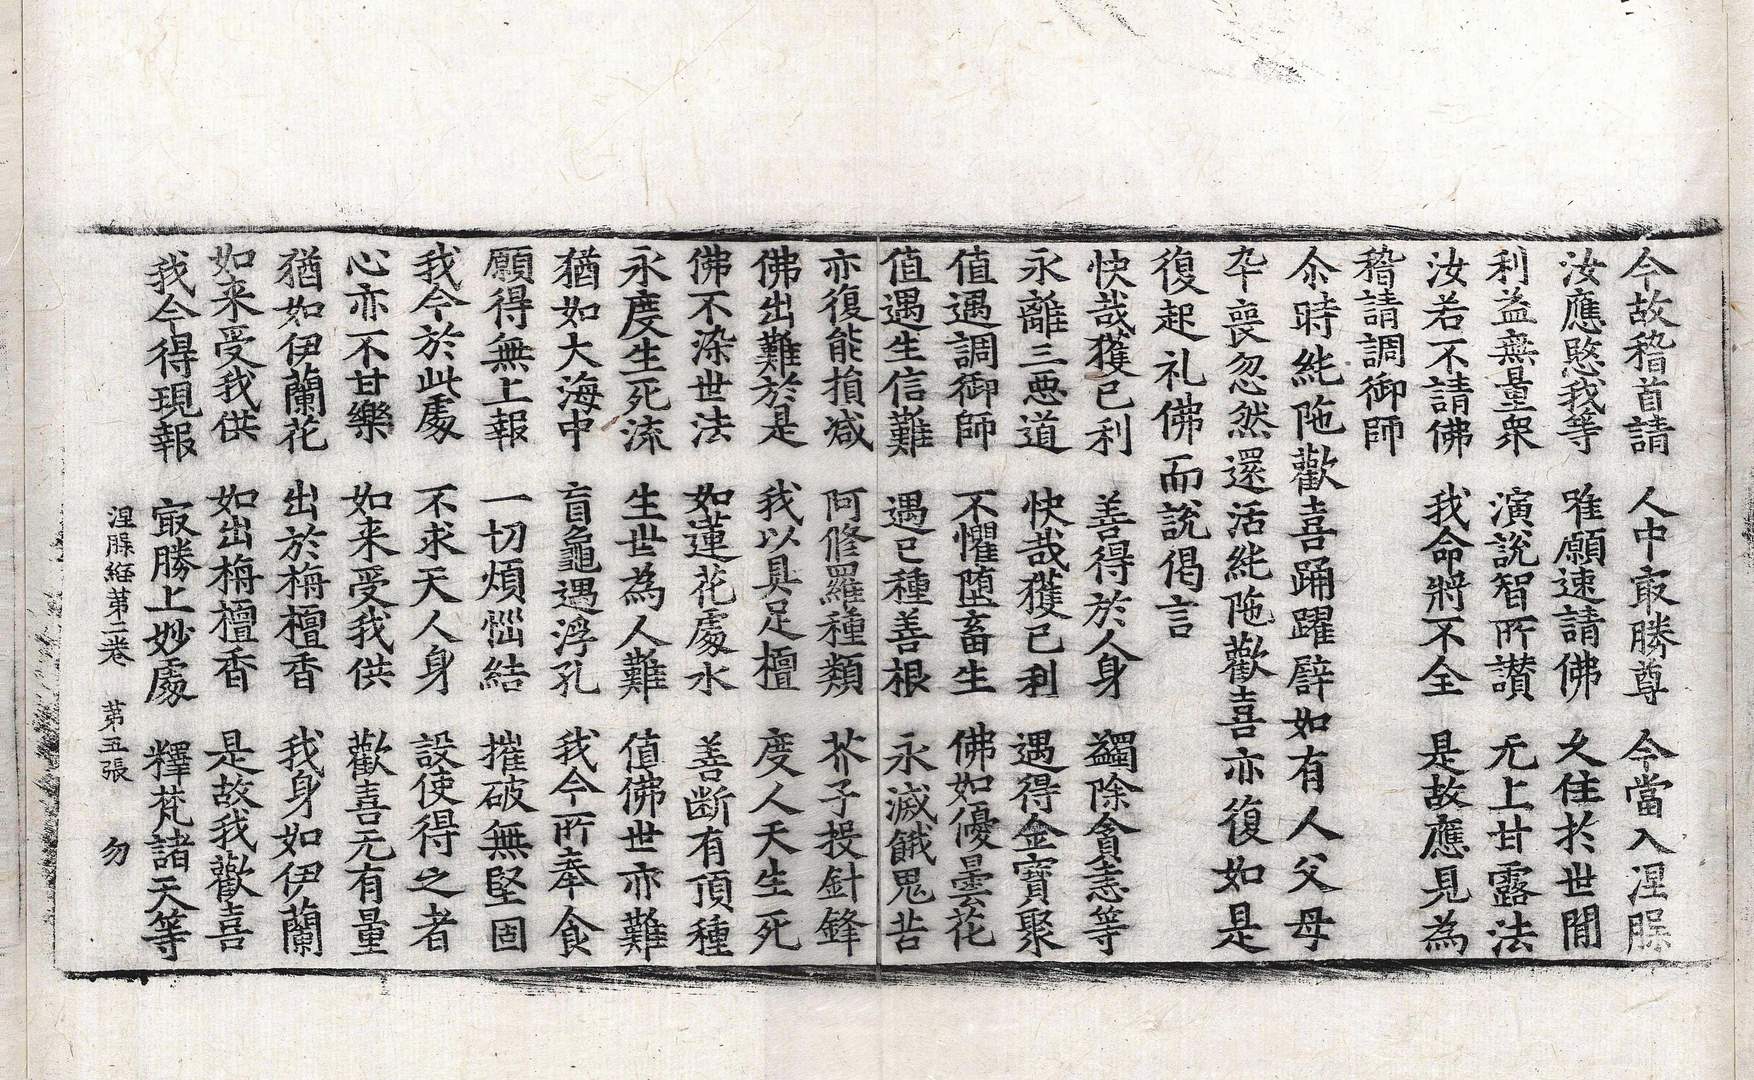 今故稽首請　人中㝡勝尊　今當入涅槃
汝應愍我等　唯願速請佛　久住於世間
利益無量衆　演說智所讃　无上甘露法
汝若不請佛　我命將不全　是故應見為
稽請調御師
尒時純陁歡喜踊躍譬如有人父母
卒喪忽然還活純陁歡喜亦復如是
復起礼佛而說偈言
快哉獲己利　善得於人身　蠲除貪恚等
永離三悪道　快哉獲己利　遇得金寶聚
值遇調御師　不懼堕畜生　佛如優曇花
值遇生信難　遇已種善根　永滅餓鬼苦
亦復能損减　阿修羅種類　芥子投針鋒
佛出難於是　我以具足檀　度人天生死
佛不染世法　如蓮花處水　善断有頂種
永度生死流　生世為人難　值佛世亦難
猶如大海中　盲龜遇浮孔　我今所奉食
願得無上報　一切煩惱結　摧破無堅固
我今於此處　不求天人身　設使得之者
心亦不甘樂　如来受我供　歡喜无有量
猶如伊蘭花　出於栴檀香　我身如伊蘭
如来受我供　如出栴檀香　是故我歡喜
我今得現報　㝡勝上妙處　釋梵諸天等
涅槃経第二卷　第五張　勿